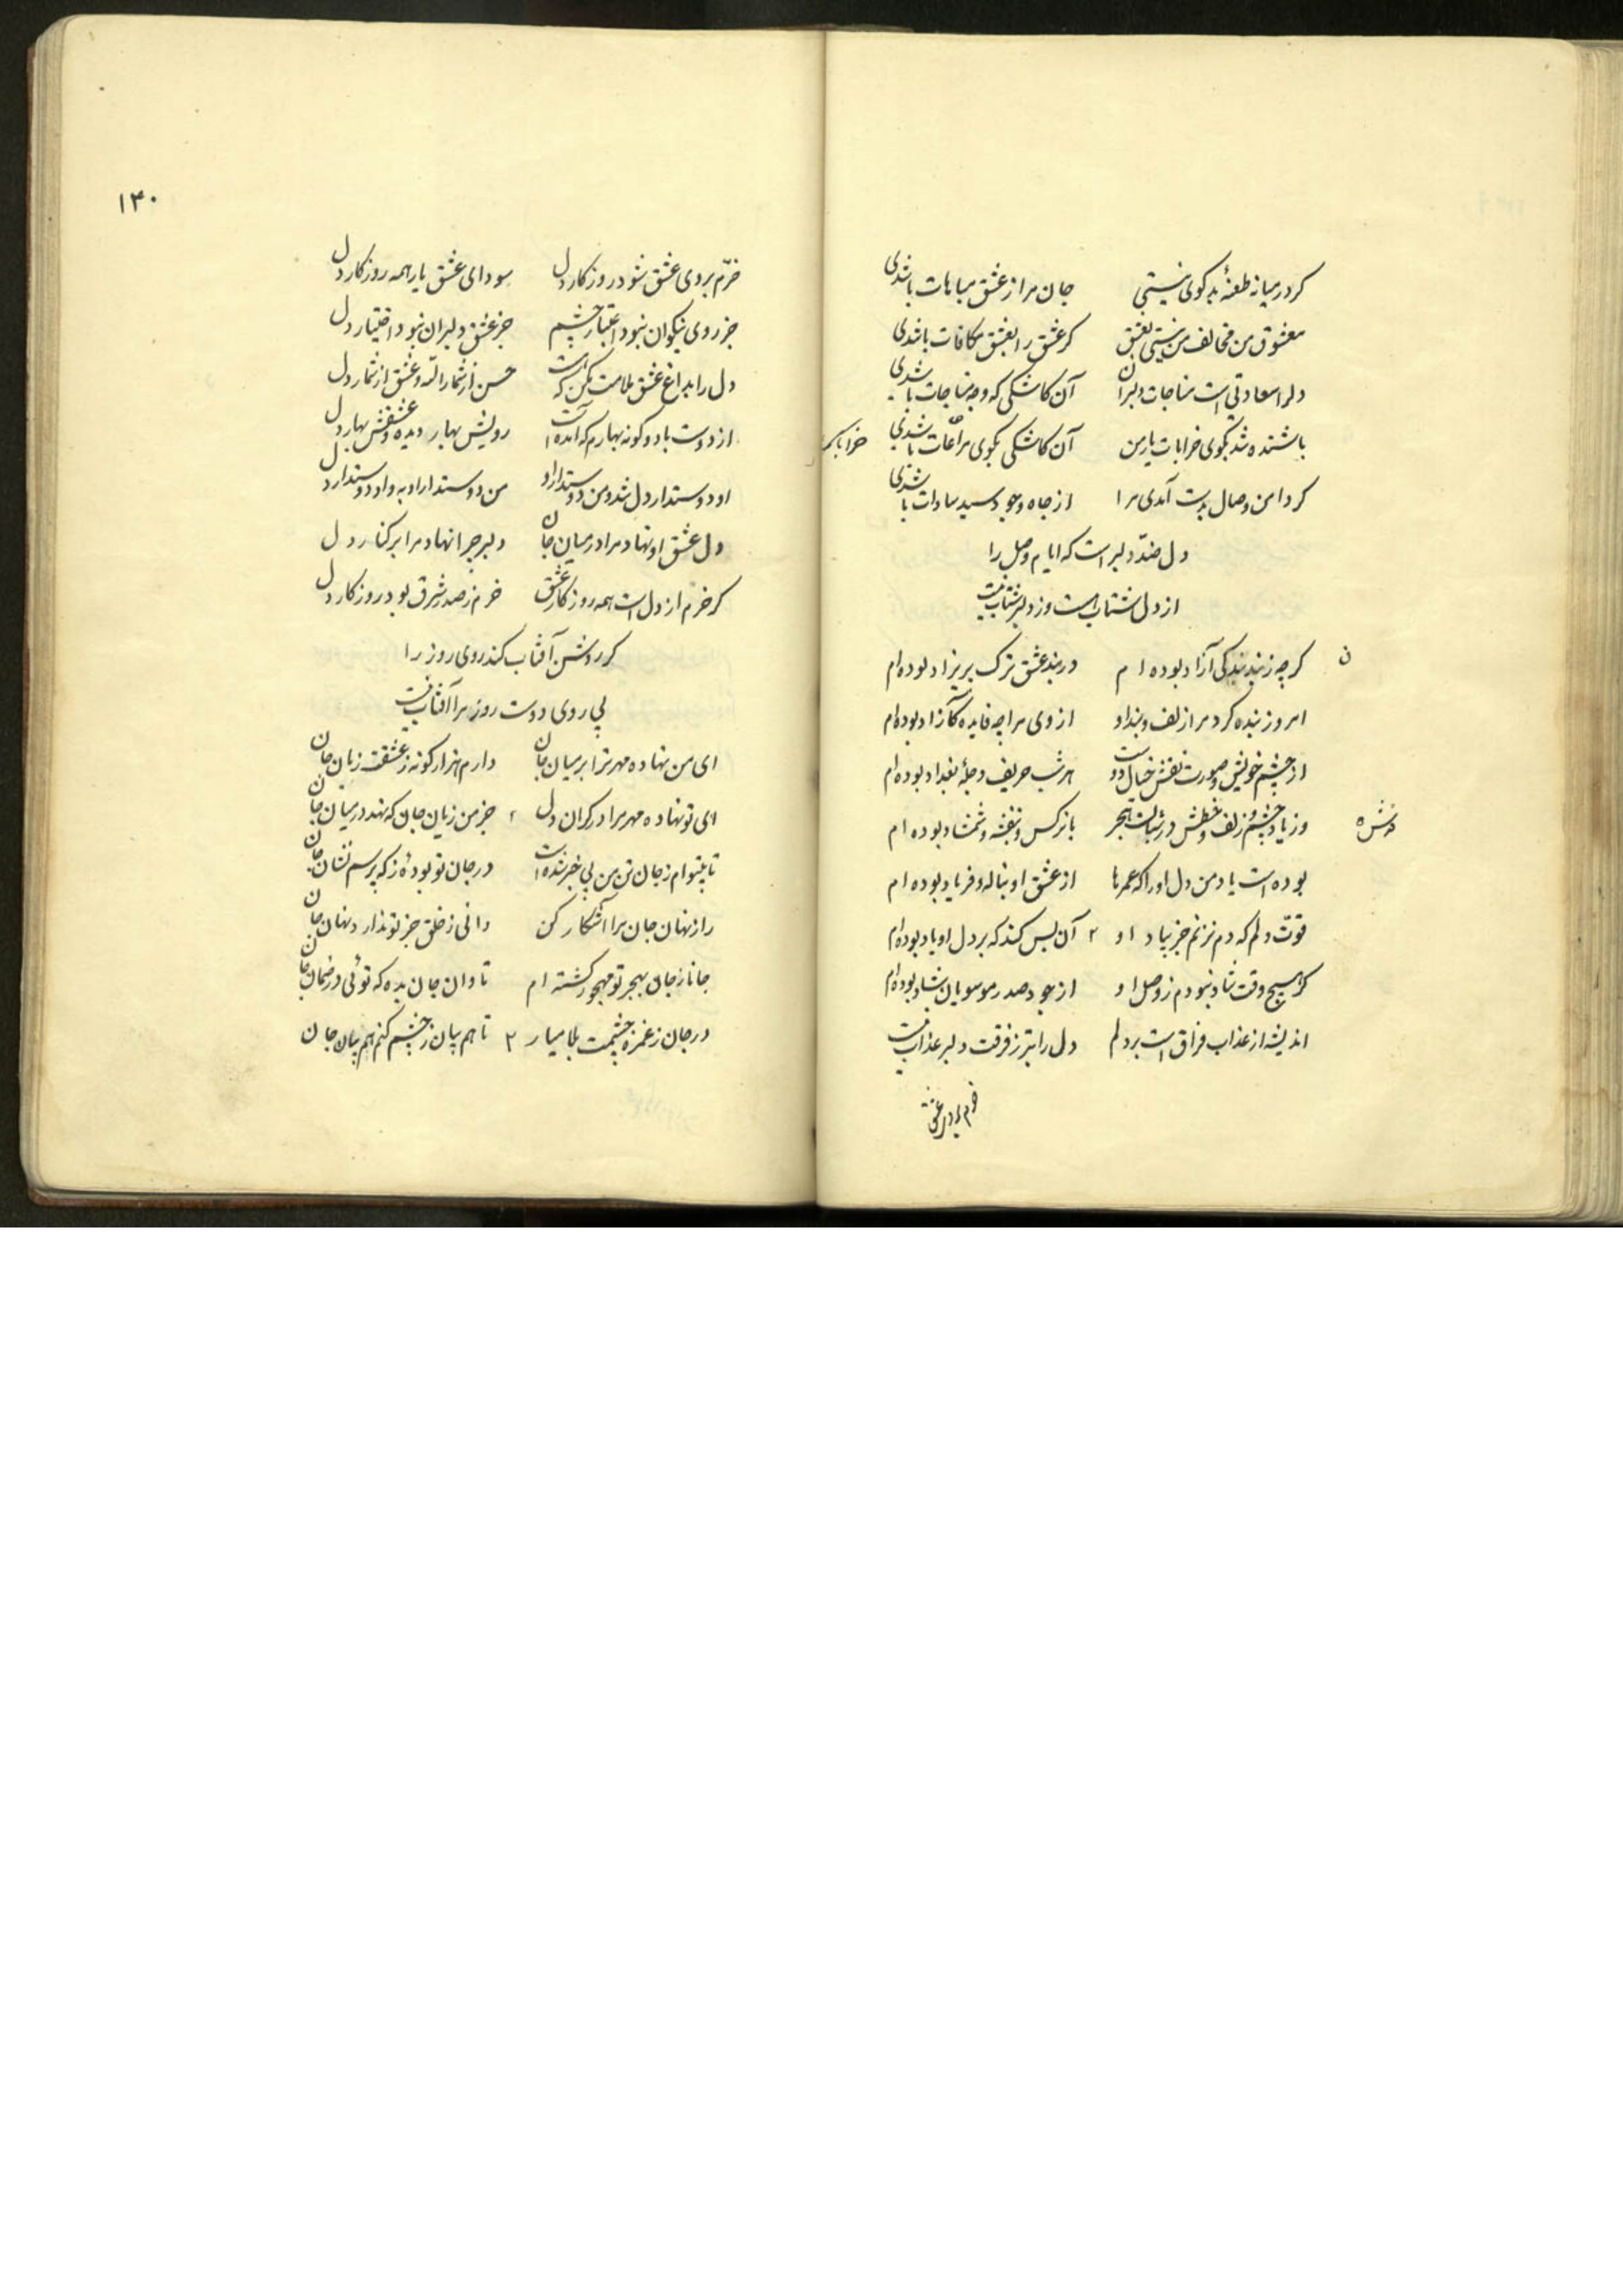 کر در میانه طعنهٔ بدکوی نیستی جان مرا ز عشق مباهات باشدی
معشوق من مخالف من نیستی بعشق کر عشق را بعشق مکافات باشدی
دلرا سعادتی است مناجات دلبران آن کاشکی که وجه مناجات باشدی
باشنده شد بکوی خرابات یار من آن کاشکی بکوی مراعات باشدی
کر دامن وصال بدست آمدی مرا از جاه وجود سید سادات باشدی
دل ضدّ دلبر است که ایام وصل را
از دل شتاب است وز دلبر شتاب نیست
ن
کرچه ز بند بندکی آزاد بوده ام در بند عشق ترک پریزاد بوده ام
امروز بنده کرد مرا زلف وبند او از وی مرا چه فایده کازاد بوده ام
از چشم خویش وصورت نقش خیال دوست هر شب حریف دجلهٔ بغداد بوده ام
وز یاد چشم وزلف وخطش در شبات هجر با نرکس وبنفشه وشمشاد بوده ام
بوده است یاد من دل او را که عمرها از عشق او بناله وفریاد بوده ام
قوّت دلم که دم نزنم جز بیاد او ۲ آن بس کند که بر دل او یاد بوده ام
کر هیچ وقت شاد نبودم ز وصل او از جود صدر موسویان شاد بوده ام
اندیشه از عذاب فراق است بر دلم دل را بتر ز فرقت دلبر عذاب نیست
خرم بروی عشق
۱۳۰
خرّم بروی عشق شود روزکار دل سودای عشق یار همه روزکار دل
جز روی نیکوان نبود اعتبار چشم جز عشق دلبران نبود اختیار دل
دل را بداغ عشق ملامت مکن که هست حسن از شمار اله وعشق از شمار دل
از دوست با دو کونه بهارم که آمده است رویش بهار دیده وعشقش بهار دل
او دوستدار دل شد ومن دوستدار او من دوستدار او به واو دوستدار دل
دل عشق او نهاد مرا در میان جان دلبر چرا نهاد مرا بر کنار دل
کر خرم از دل است همه روزکار عشق خرم ز صدر شرق بود روزکار دل
کر روشن آفتاب کند روی روز را
بی روی دوست روز مرا آفتاب نیست
ای من نهاده مهر ترا بر میان جان دارم هزار کونه ز عشقت زیان جان
ای تو نهاده مهر مرا در کران دل جز من زیان جان که نهد در میان جان
تا بیتوام ز جان تن من بی خبر شده است در جان تو بودهٔ ز که پرسم نشان جان
راز نهان جان مرا آشکار کن دانی ز خلق جز تو ندارد نهان جان
جانا ز جان بهجر تو مهجور کشته ام تاوان جان بده که توئی در ضمان جان
در جان ز غمزه چشمت بلا میار ۲ تا هم بیان ز چشم کنم هم بیان جان